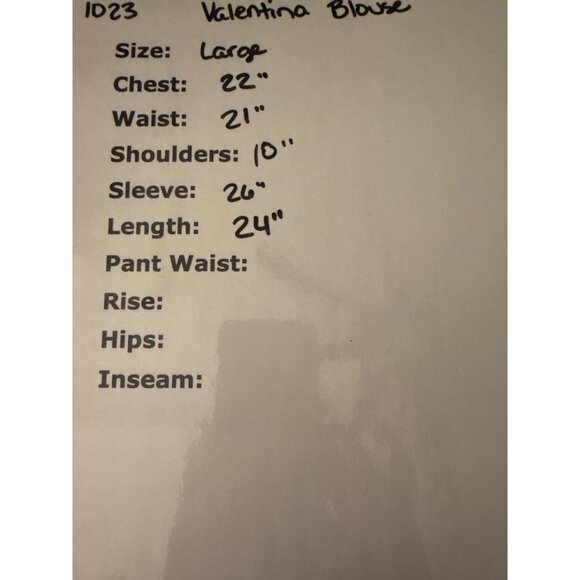 1023 Valentina Blouse
Size: Large
Chest: 22"
Waist: 21"
Shoulders: 10"
Sleeve: 26"
Length: 24"
Pant Waist:
Rise:
Hips:
Inseam: